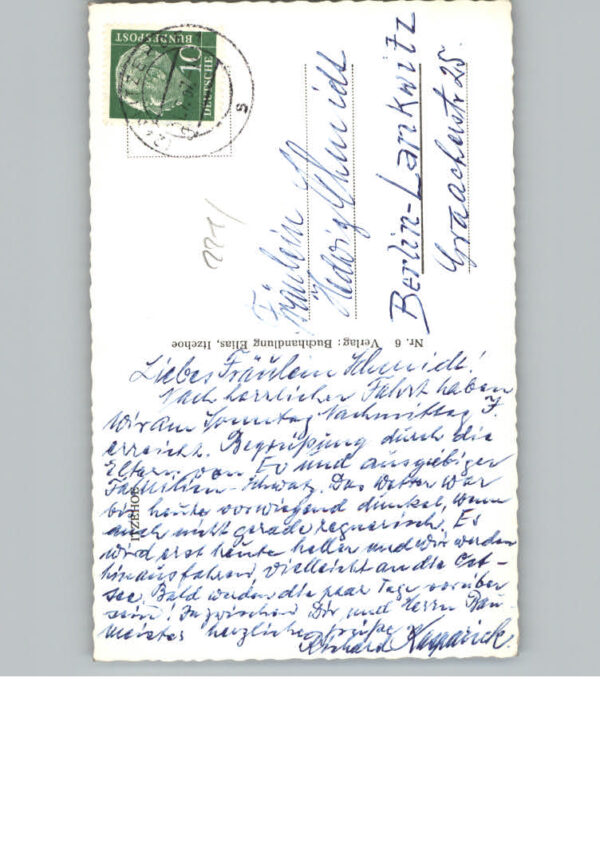 DEUTSCHE
BUNDESPOST
10
ITZEHOE
s
221/
Fräulein
Hedwig Schmidt
Berlin-Lankwitz
Graacherstr 25.
Nr. 6 Verlag: Buchhandlung Elias, Itzehoe
ITZEHOE
Liebes Fräulein Schmidt!
Nach herrlicher Fahrt haben
wir am Sonntag Nachmittag I.
erreicht. Begrüßung durch die
Eltern von Ev und ausgiebiger
Familien-Schwatz. Das Wetter war
bis heute vorwiegend dunkel, wenn
auch nicht gerade regnerisch. Es
wird erst heute heller und wir werden
hinausfahren vielleicht an die Ost-
see. Bald werden die paar Tage vorüber
sein! Inzwischen Dir und Herrn Bau-
meister herzliche Grüße
Richard